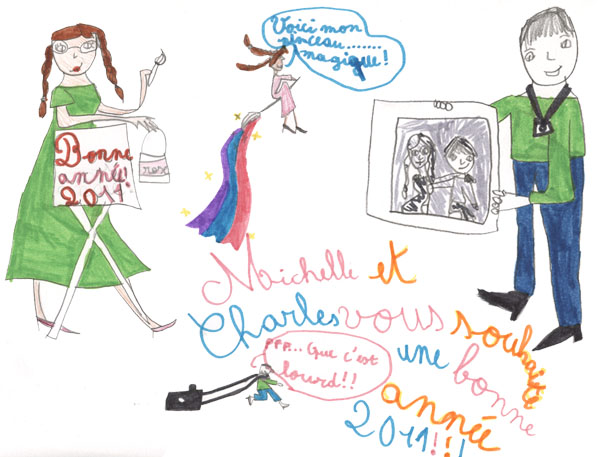 Bonne
année!
2011
rose
Voici mon
pinceau.......
magique!
Michelle et
Charles vous souhaite
une bonne
année
2011!!!
PFP... Que c'est
lourd!!